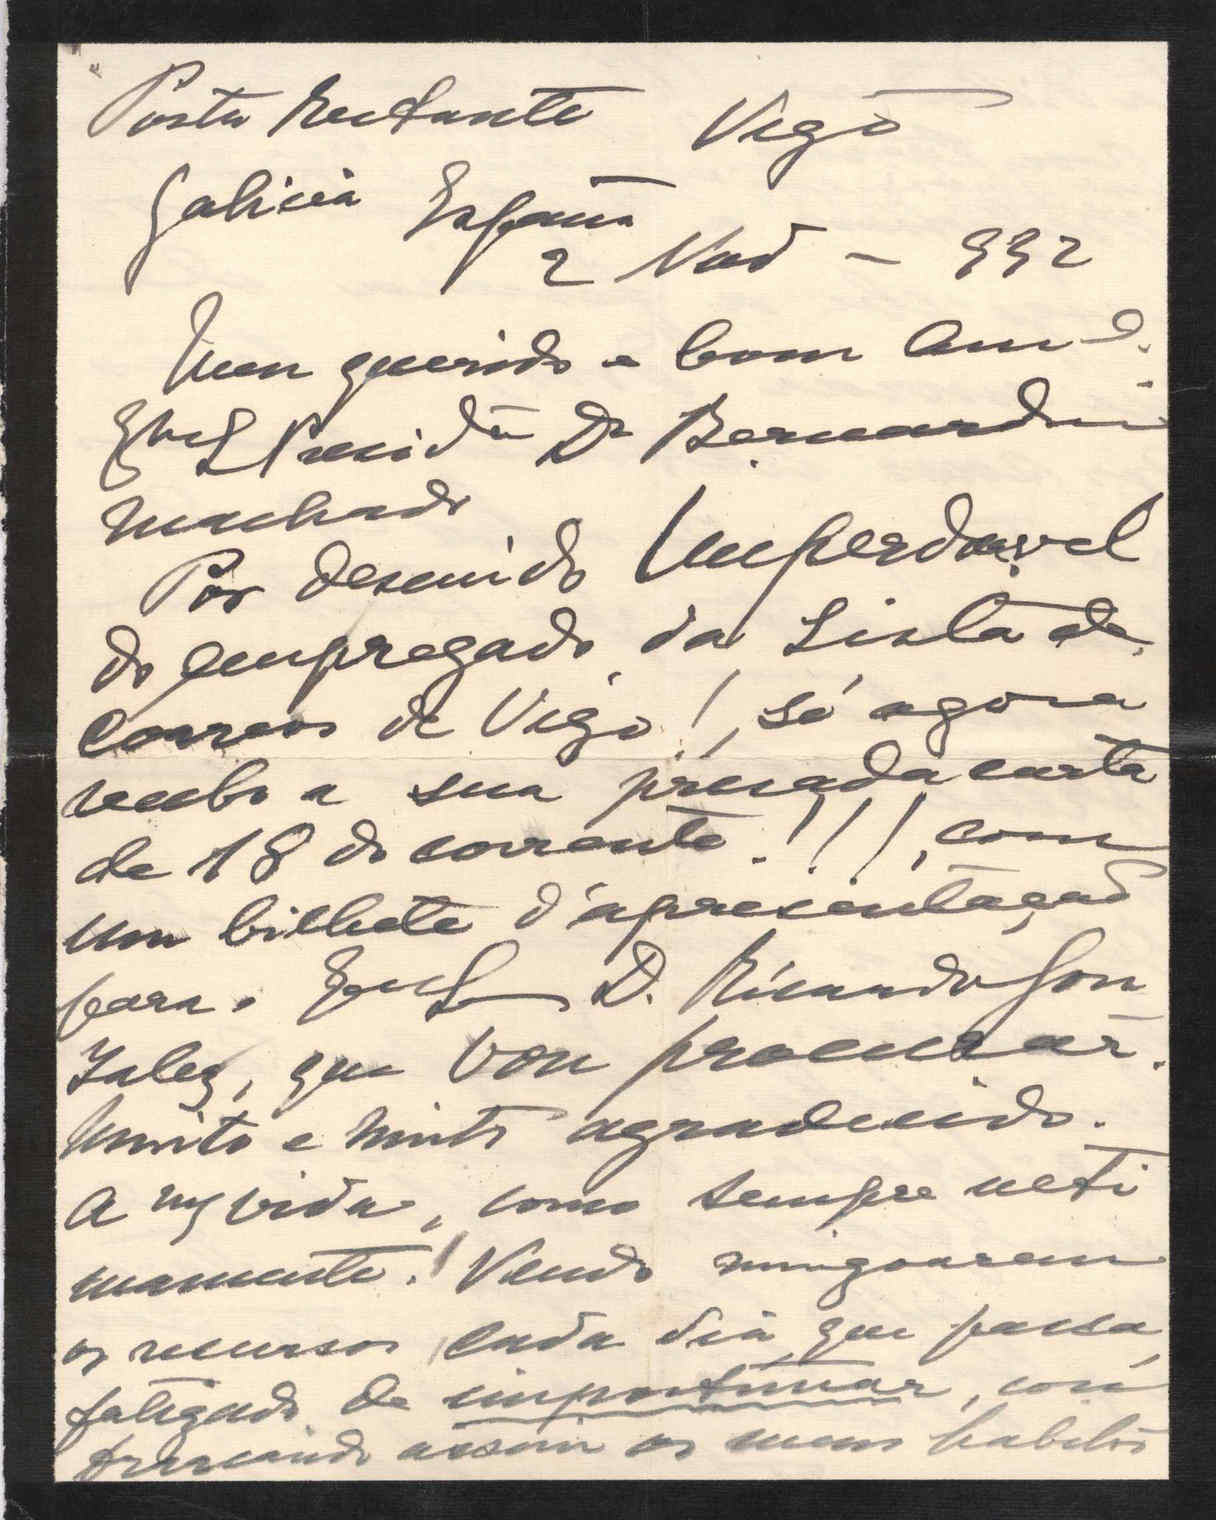 Posta Restante Vigo
Galicia España
2 Nov - 932
Meu querido e bom Amo.
Exmo Sr Presidte Dr Bernardino
Machado
Por descuido Imperdoavel
do empregado da Lista de
Correos de Vigo!, só agora
recebo a sua presada carta
de 18 do corrente!!!, com
um bilhete d'apresentação
para o Exmo Sr D. Ricardo Gon
zalez, que vou procurar.
Muito e muito agradecido.
A mª vida, como sempre ulti
mamente! Vendo mingoarem
os recursos cada dia que passa,
fatigado de importunar, con
trariando assim os meus habitos